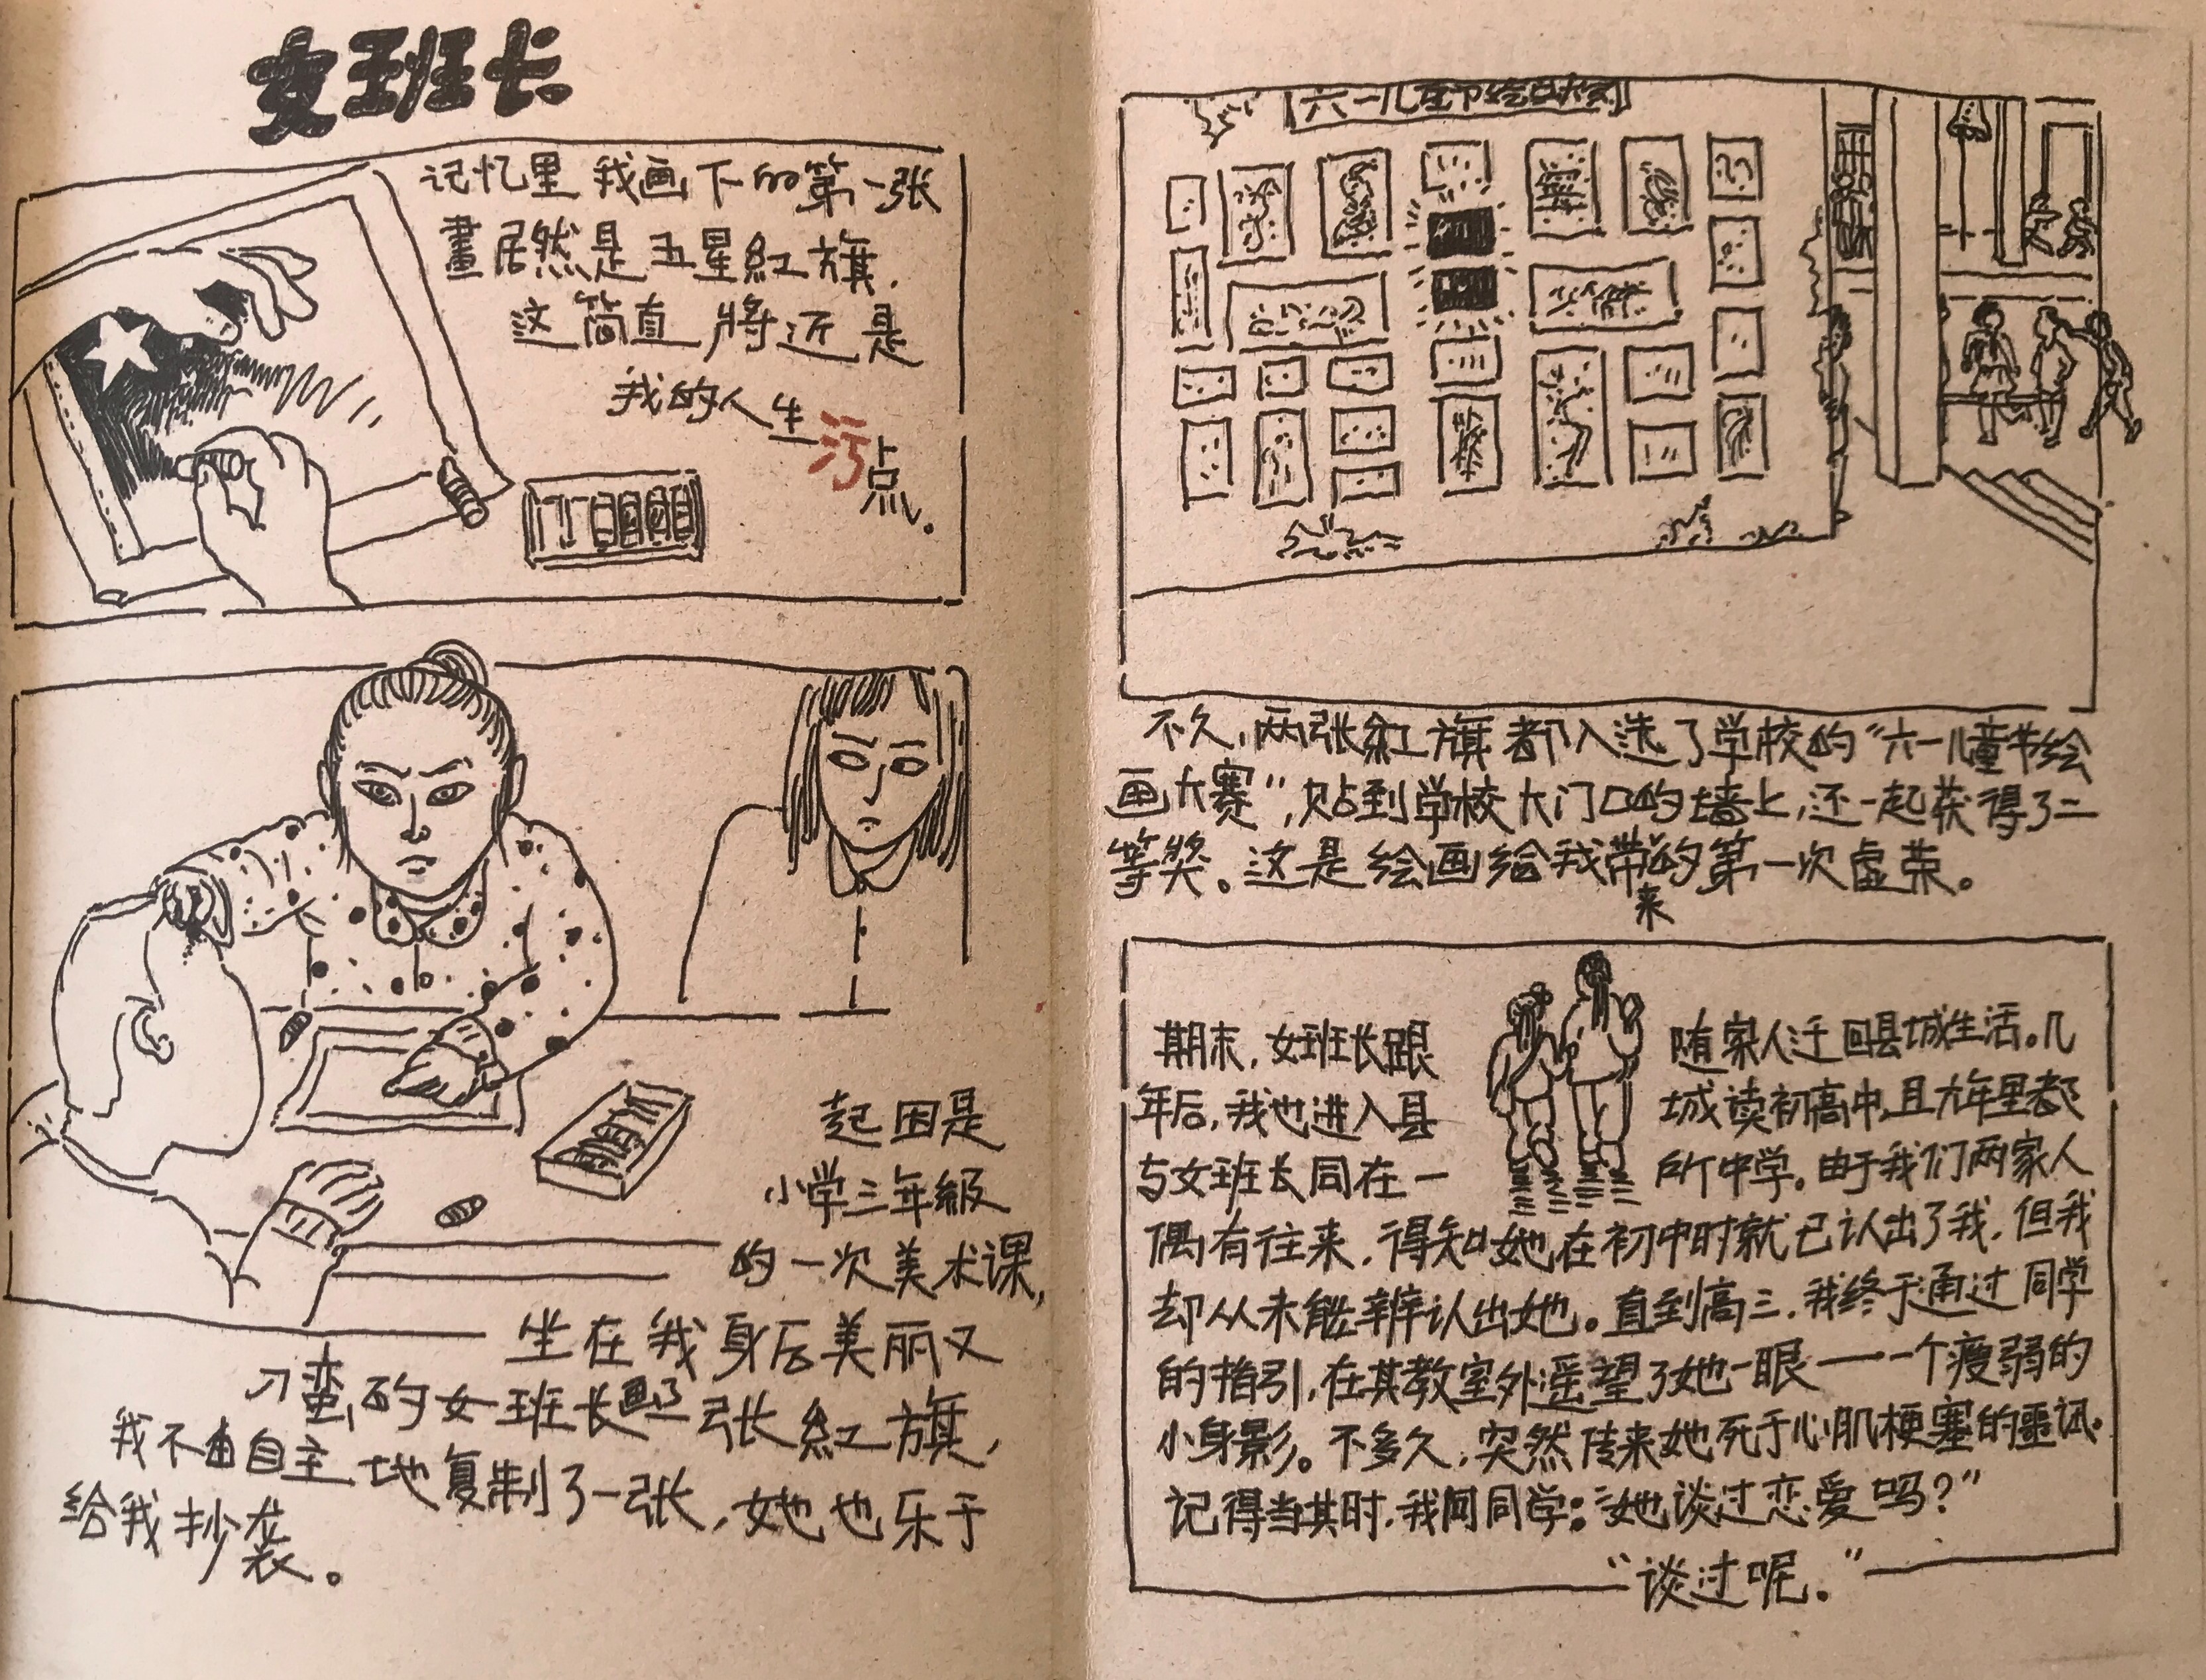 女班长
记忆里我画下的第一张
畫居然是五星紅旗，
这简直將近是
我的人生污点。
起因是
小学三年级
的一次美术课，
坐在我身后美丽又
刁蛮的女班长画了一张紅旗，
我不由自主地复制了一张，她也乐于
给我抄袭。
六一儿童节绘画大赛
不久，两张紅旗都入选了学校的“六一儿童节绘
画大赛”，贴到学校大门口的墙上，还一起获得了二
等奖。这是绘画给我带来的第一次虚荣。
期末，女班长跟随家人迁回县城生活。几
年后，我也进入县城读初高中，且六年里都
与女班长同在一所中学。由于我们两家人
偶有往来，得知她在初中时就已认出了我，但我
却从未能辨认出她。直到高三，我终于通过同学
的指引，在其教室外遥望了她一眼——一个瘦弱的
小身影。不多久，突然传来她死于心肌梗塞的噩讯。
记得当其时，我问同学：“她谈过恋爱吗？”
“谈过呢。”